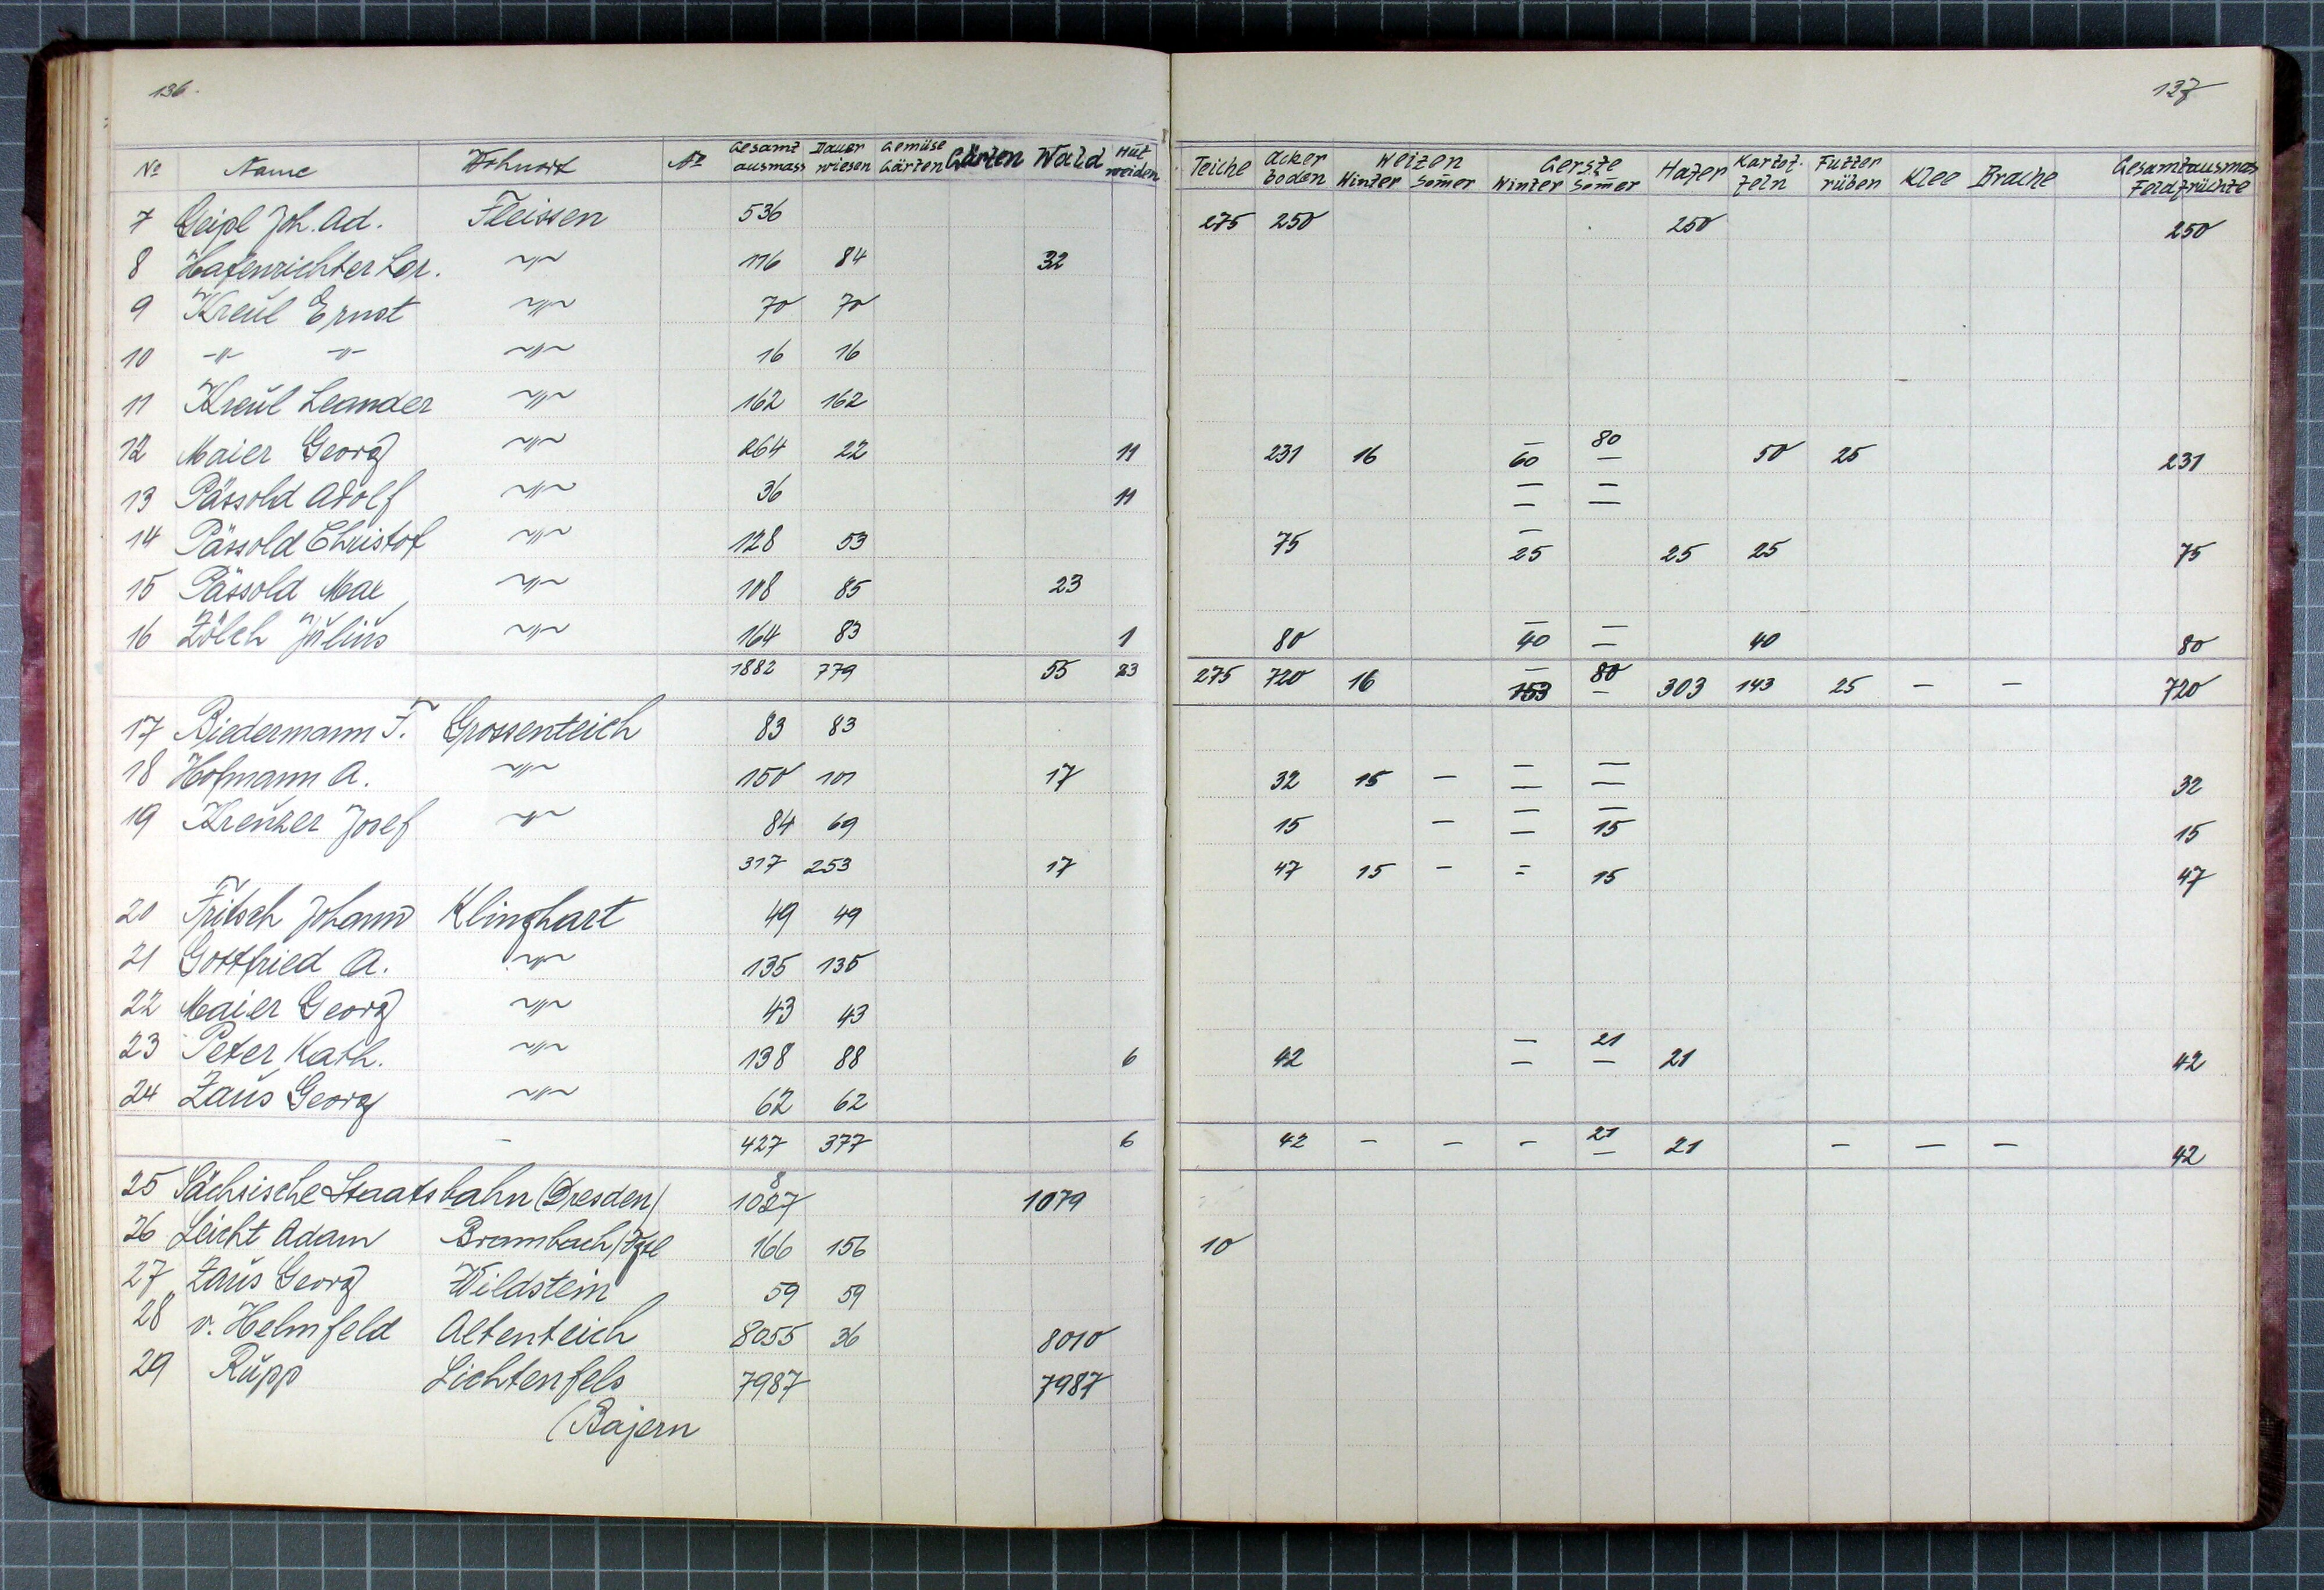 136.
137
№ Name Wohnort № Gesamt ausmass Dauer wiesen Gemüse Gärten Gärten Wald Hut weiden Teiche Acker boden Weizen Winter Som̄er Gerste Winter Som̄er Hafer Kartof- feln Futter rüben Klee Brache Gesamtausmas Feldfrüchte
7 Geipl Joh. Ad. Fleissen 536 275 250 250 250
8 Hafenrichter Lor. ~"~ 116 84 32
9 Kreŭl Ernst ~"~ 70 70
10 -"- -"- ~"~ 16 16
11 Kreŭl Leander ~"~ 162 162
12 Maier Georg ~"~ 264 22 11 231 16 — 60 80 — 50 25 231
13 Pässold Adolf ~"~ 36 11 — — — —
14 Pässold Christof ~"~ 128 53 75 — 25 25 25 75
15 Pässold Max ~"~ 108 85 23
16 Zölch Jŭliŭs ~"~ 164 83 1 80 — 40 — — 40 80
1882 779 55 23 275 720 16 — 153 80 — 303 143 25 — — 720
17 Biedermann F. Grossenteich 83 83
18 Hofmann A. ~"~ 150 101 17 32 15 — — — — — 32
19 Kreŭzer Josef ~"~ 84 69 15 — — — — 15 15
317 253 17 47 15 — = 15 47
20 Fritsch Johann Klinghart 49 49
21 Gottfried A. ~"~ 135 135
22 Maier Georg ~"~ 43 43
23 Peter Kath. ~"~ 138 88 6 42 — — 21 — 21 42
24 Zaŭs Georg ~"~ 62 62
— 427 377 6 42 — — — 21 — 21 — — — 42
25 Sächsische Staatsbahn (Dresden) 1027 8 1079
26 Leicht Adam Brambach 166 156 10
27 Zaŭs Georg Wildstein 59 59
28 v. Helmfeld Altenteich 8055 36 8010
29 Rŭpp Lichtenfels 7987 7987
(Bajern